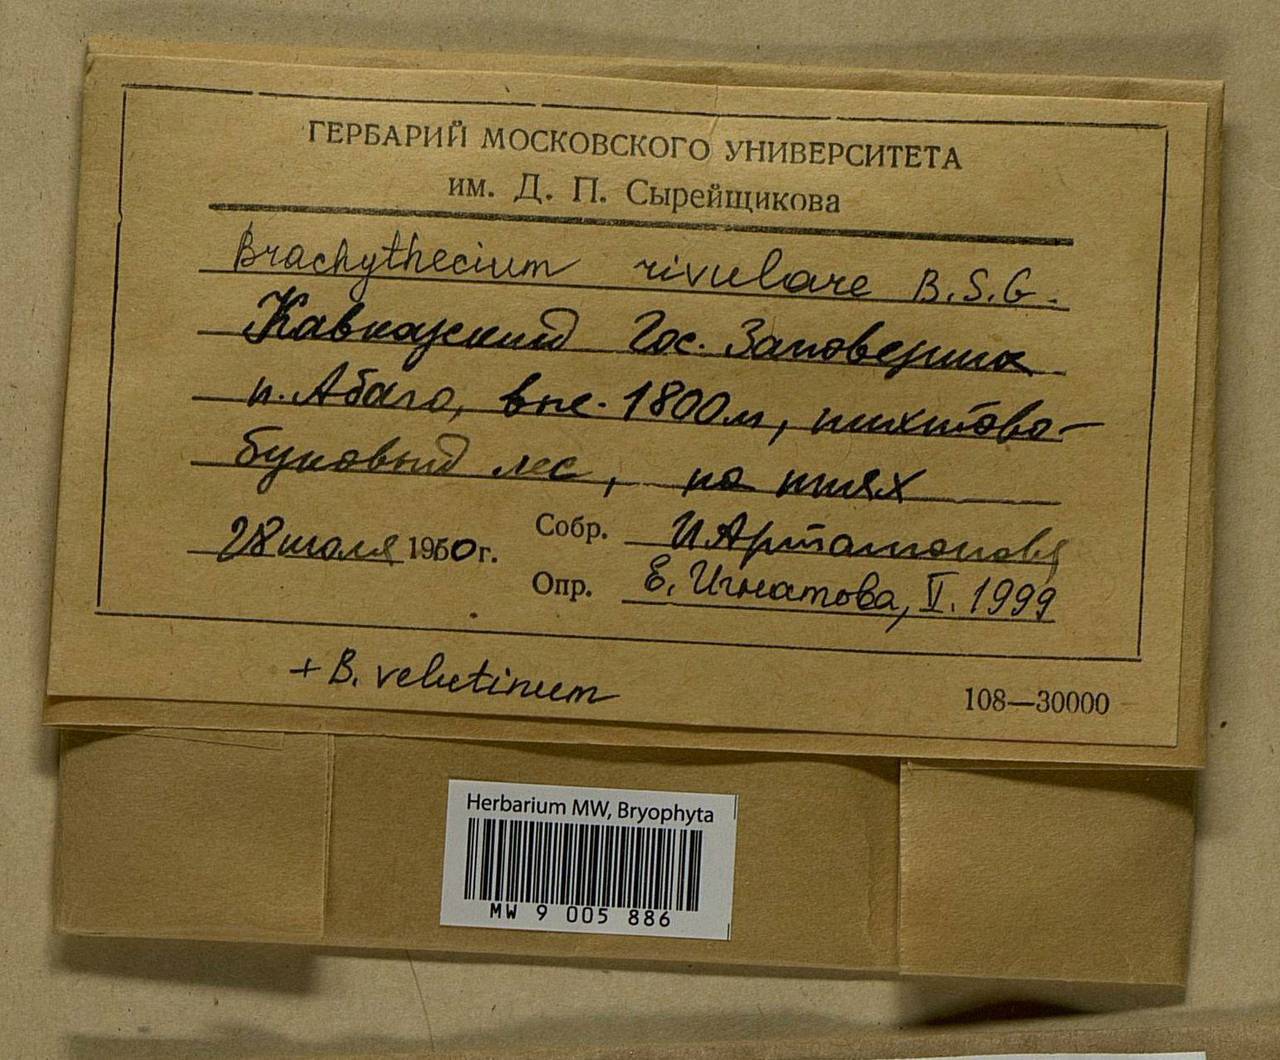 ГЕРБАРИЙ МОСКОВСКОГО УНИВЕРСИТЕТА
им. Д. П. Сырейщикова
Brachythecium rivulare B.S.G.
Кавказский Гос. Заповедник
п. Абаго, выс. 1800м, пихтово-
буковый лес, на пнях
28 июля 1960г. Собр. И. Артамонова
Опр. Е. Игнатова, V. 1999
+ B. velutinum
108—30000
Herbarium MW, Bryophyta
MW 9 005 886